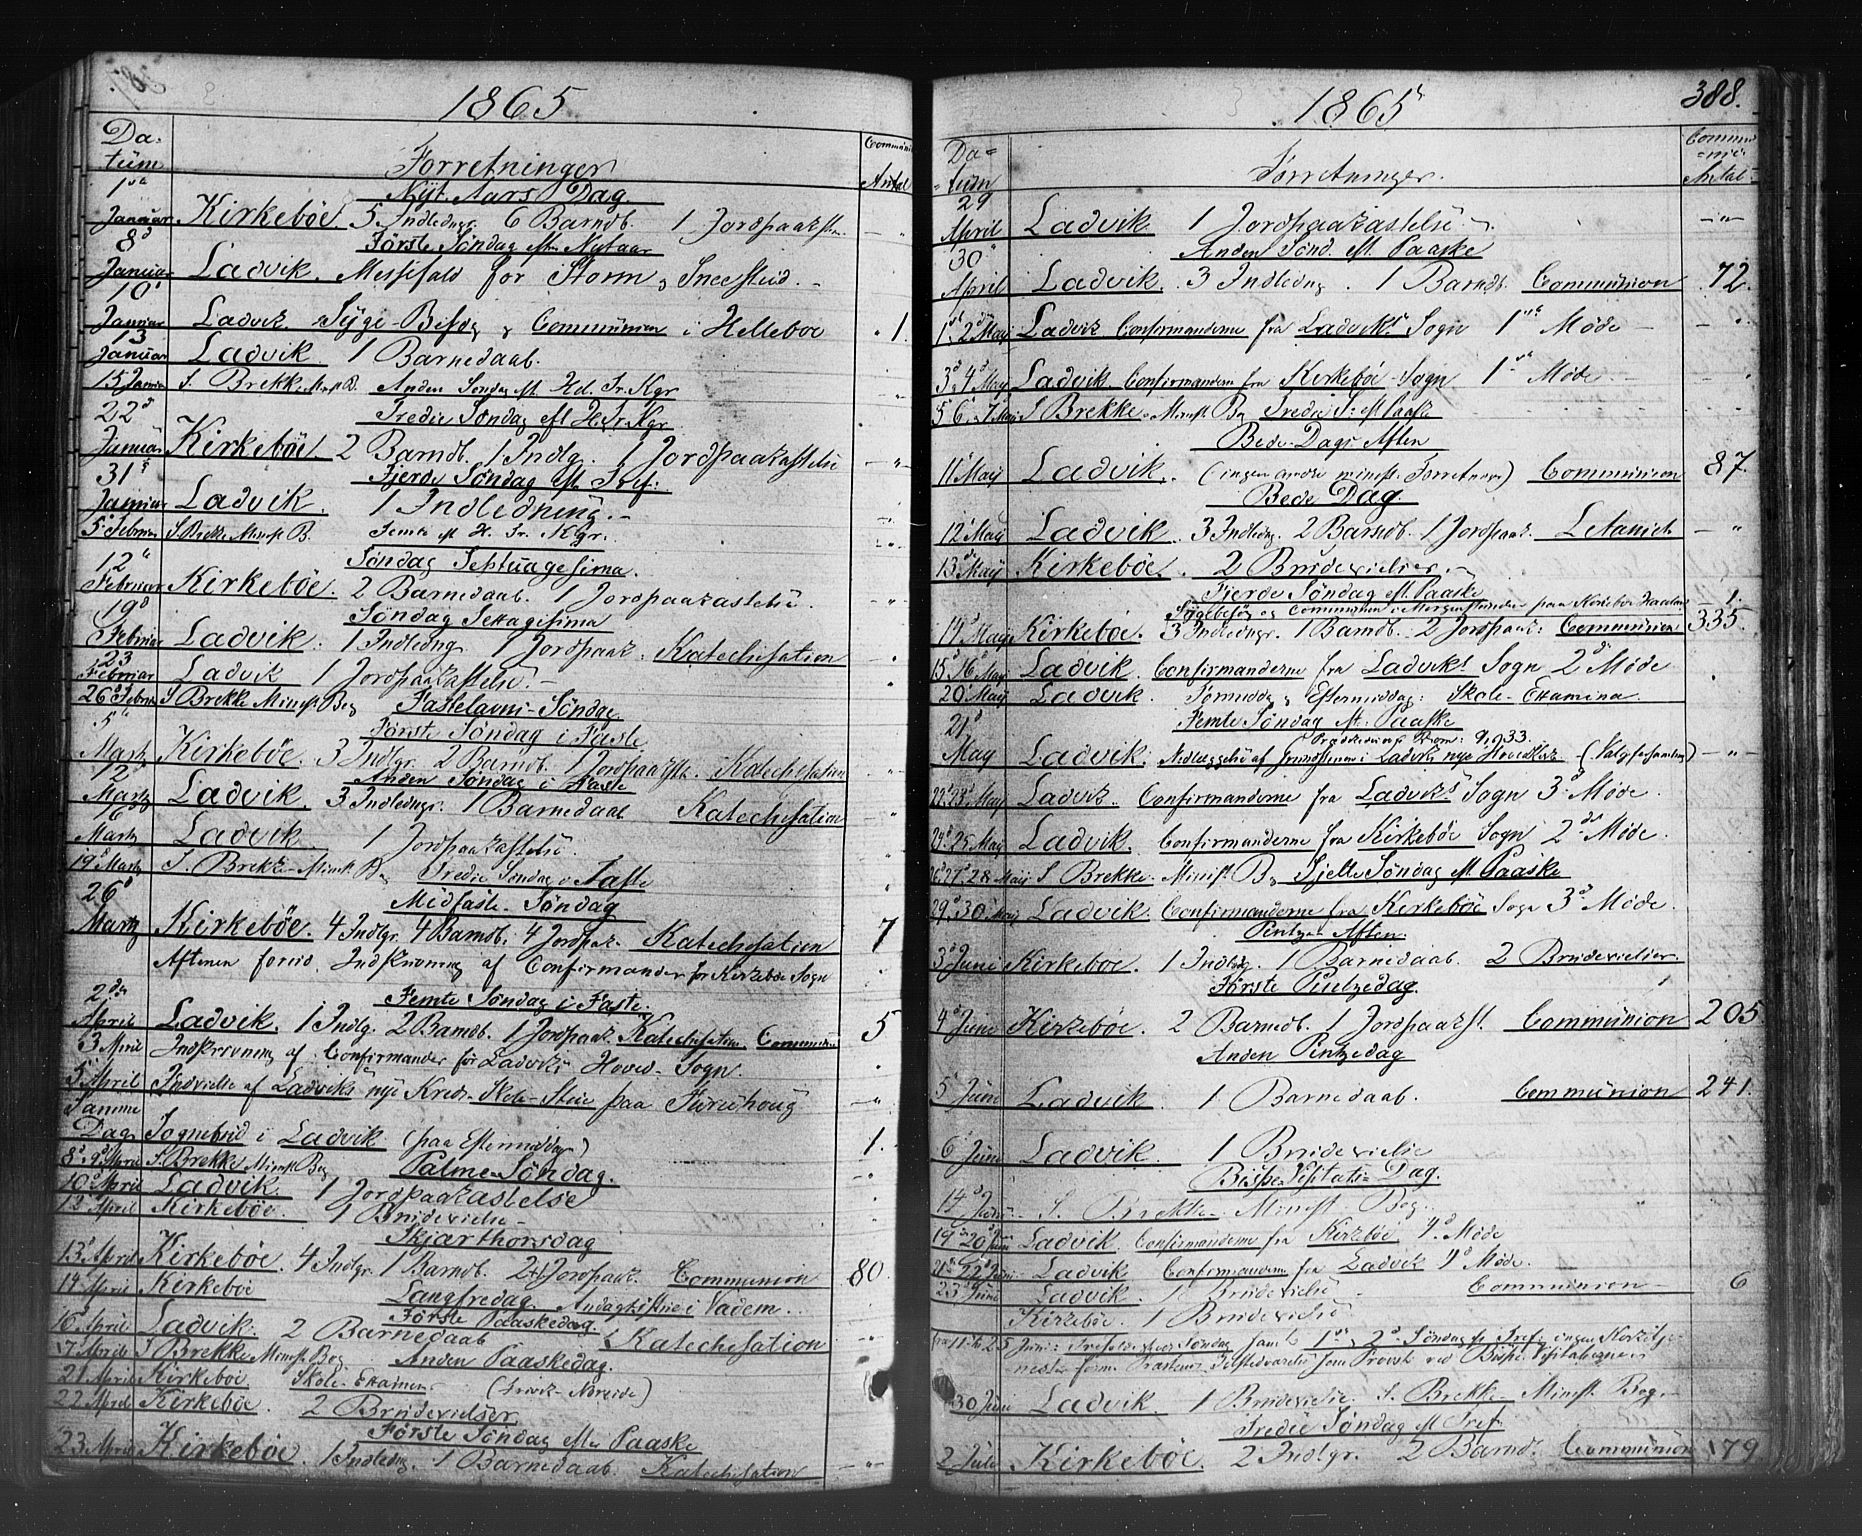 1865
Datum Forretninger Communi Antal
1ste Nÿt Aars Dag
Januar Kirkebøe. 5 Indledng. 6 Barndb. 1 Jordpaakst. — „
8d Første Søndag efter Nÿtaar
Januar Ladvik. Messefald for Storm og Sneestiid. —
10d
Januar Ladvik Sÿge-Besøg og Communion i Hellebøe 1.
13
Januar Ladvik 1 Barnedaab.
15 Januar S. Brekke Minst B. Anden Søndag eft. Hel. Tr. Kgr
22d Tredie Søndag eft H. Tr. Kgr
Januar Kirkebøe 2 Barndb. 1 Indlg. 1 Jordpaakastelse — „
31 Fjerde Søndag eft
Januar Ladvik. 1 Indledning. —
5 Februar S. Brekke Minist B. Femte eft H. Tr. Kgr.
12te Søndag Septuagesima.
Februar Kirkebøe. 2 Barnedaab. 1 Jordpaakastelse.
19d Søndag Sexagesima
Februar Ladvik. 1 Indledng 1 Jordpaak. Katechisation
23
Februar Ladvik 1 Jordpaakastelse. —
26d Febr S Brekke Minist. Bg Fastelavns-Søndag
5te Første Søndag i Faste
Martz Kirkebøe. 3 Indlgr. 2 Barndb. 1 Jordpaakst. Katechisation
12 Anden Søndag i Faste
Martz Ladvik. 3 Indledngr. 1 Barnedaab Katechisation
16
Martz Ladvik 1 Jordpaakastelse.
19d Martz S. Brekke Minist. Bg Tredie Søndag i Faste
26d Midfaste-Søndag
Martz Kirkebøe. 4 Indlgr. 4 Barndb. 4 Jordpak. Katechisation 7
Aftenen forud. Indskrivning af Confirmander for Kirkebøe Sogn
2den Femte Søndag i Faste
April Ladvik. 1 Indlg. 2 Barndb. 1 Jordpaak. Katechisation Communion 5
3 April Indskrivning af Confirmander for Ladviks Hoved-Sogn.
5 April Indvielse af Ladviks nye Kreds-Skole-Stue paa
Samme
Dag Sognebud i Ladvik (paa Eftermiddag) 1.
8d 9d April S Brekke Minist Bg Palme-Søndag.
10d April Ladvik 1 Jordpaakastelse
12 April Kirkebøe. 1 Brudevielse —
Skjærthorsdag
13d April Kirkebøe. 4 Indlgr. 1 Barndb. 2 Jordpaak. Communion 80.
14 April Kirkebøe Langfredag. i Vadem.
Første Paaskedag.
16 April Ladvik. 2 Barnedaab Katechisation
17 April S Brekke Minist. Bog. Anden Paaskedag.
21 April Kirkebøe Skole-Examen
22 April Kirkebøe. 2 Brudevielser
Første Søndag efter Paaske
23 April Kirkebøe. 1 Indledng 1 Barnedaab. Katechisation — „
1865 388.
Datum Forretninger. Communi Antal
29
April Ladvik 1 Jordpaakastelse — „
30 Anden Sønd. eft. Paaske
April Ladvik. 3 Indledng. 1 Barndb. Communion 72.
1ste 2d Maÿ Ladvik Confirmanderne fra Ladviks Sogn 1ste Møde —
3d 4d Maÿ Ladvik. Confirmanderne fra Kirkebøe Sogn 1ste Møde —
5 6 7 Maÿ S Brekke. Minist. Bg Tredie S. eft Paaske
Bede-Dags Aften
11 Maÿ Ladvik. (ingen andre minist. Forretninger) Communion 87.
Bede Dag
12 Maÿ Ladvik 3 Indledng. 2 Barndb. 1 Jordpaak. Letanich — „
13 Maÿ Kirkebøe. 2 Brudevielser —
Fjerde Søndag eft. Paaske
Sygebesøg og Communion i 1.
14d Maÿ Kirkebøe. 3 Indledngr. 1 Barndb. 2 Jordpaak. Communion 335.
15d 16d Maÿ Ladvik. Confirmanderne fra Ladviks Sogn 2d Møde
20d Maÿ Ladvik. Formiddag og Eftermiddag. Skole-Examina.
21d Femte Søndag eft. Paaske
Prædikening Rom. 9, 33.
Maÿ Ladvik. Nedlæggelse af Grundstenen i Ladviks nye Hovedkirke (Valgforsamling) — „
22d 23d Maÿ Ladvik. Confirmanderne fra Ladviks Sogn 3d Møde.
24d 25 Maÿ Ladvik. Confirmanderne fra Kirkebøe Sogn 2d Møde.
26d 27d 28 Maÿ S Brekke. Minist. Bg Sjette Søndag eft. Paaske
29d 30 Maÿ Ladvik. Confirmanderne fra Kirkebøe Sogn 3d Møde.
Pintze-Aften.
3d Juni Kirkebøe. 1 Indldg. 1 Barnedaab. 2 Brudevielser
Første Pintzedag.
4d Juni Kirkebøe. 2 Barnedb. 1 Jordpaakst. Communion 205.
Anden Pintzedag
5 Juni Ladvik. 1 Barnedaab. Communion 241.
6 Juni Ladvik 1 Brudevielse
Bispe-Visitats-Dag.
14d Juni. S. Brekke. Minist. Bog.
19 20d Juni Ladvik. Confirmanderne fra Kirkebøe 4d Møde
21 22d Juni Ladvik Confirmanderne fra Ladvik 4d Møde.
23d Juni Ladvik. 1 Brudevielse Communion 6
Kirkebøe. 1 Brudevielse
fra 11 til 25 Juni: Trefoldigheds Søndag samt 1ste og 2d Søndag eft. Tref. ingen Kirketje-
neste som Provst ved Bispe Visitatzerne
30 Juni Ladvik 1 Brudevielse S. Brekke Minist Bog.
Tredie Søndag eft Tref.
2 Juli Kirkebøe 2 Indlgr. 2 Barnd. Communion 179